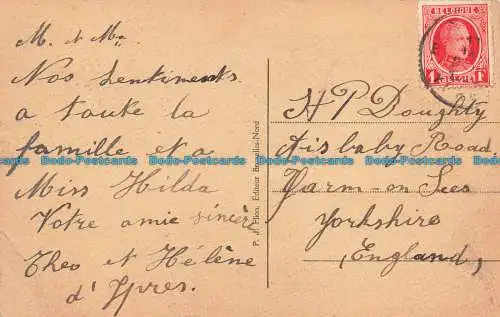 M. et Me
Nos sentiments
a toute la
famille et a
Miss Hilda
Votre amie sincère
Theo et Hélène
d'Ypres.
P. J. Flion, Editeur Bruxelles-Nord
BELGIQUE
1 F
H P Doughty
Aisbaby Road
Yarm-on Sees
Yorkshire
(England)
Dodo-Postcards Dodo-Postcards Dodo-Postcards Dodo-Postcards
Dodo-Postcards Dodo-Postcards Dodo-Postcards Dodo-Postcards